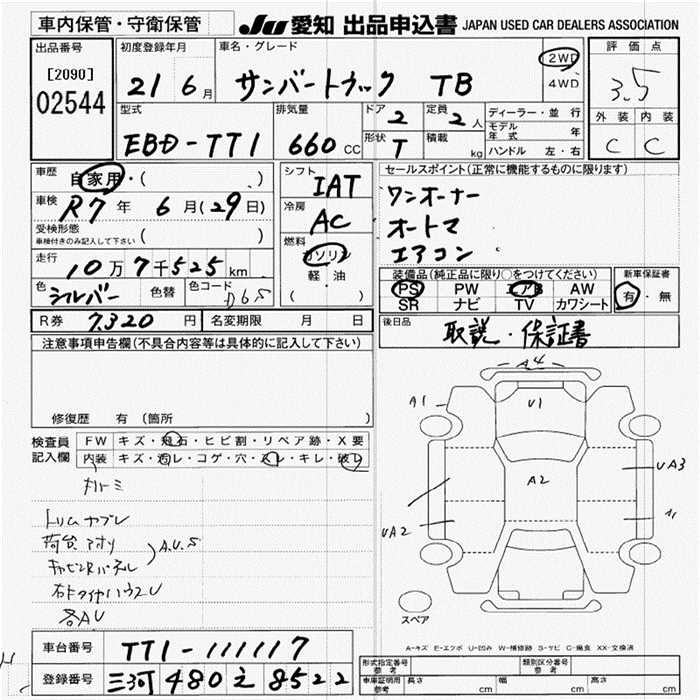 車内保管・守衛保管
JU 愛知 出品申込書 JAPAN USED CAR DEALERS ASSOCIATION
出品番号
[2090]
02544
初度登録年月
21 6月
車名・グレード
サンバートラック TB
2WD
4WD
評価点
3.5
外装 内装
C C
型式
EBD-TT1
排気量
660 CC
ドア 2
定員 2人
形状 T
積載 kg
ディーラー・並行
モデル年式 年
ハンドル 左・右
車歴
自家用・( )
車検
R7年 6月(29日)
受検形態
車検付きのみ記入して下さい ( )
走行
10万7千525km
色 シルバー 色替 色コード D6S
R券 7,320円 名変期限 月 日
シフト
IAT
冷房
AC
燃料
ガソリン
軽・油
( )
セールスポイント(正常に機能するものに限ります)
ワンオーナー
オートマ
エアコン
装備品(純正品に限り○をつけてください) 新車保証書
PS PW AB AW
SR ナビ TV カワシート
有・無
後日品
取説・保証書
注意事項申告欄(不具合内容等は具体的に記入して下さい)
修復歴 有 (箇所
検査員
記入欄
FW キズ・飛石・ヒビ割・リペア跡・X要
内装 キズ・汚レ・コゲ・穴・スレ・キレ・破レ
トリムヤブレ
荷台アオリ
A.U.S
各AU
A4
A1
U1
A2
UA3
UA2
A1
スペア
A-キズ E-エクボ U-凹み W-補修跡 S-サビ C-腐食 XX-交換済
車台番号 TT1-111117
登録番号 三河 480 え 8522
形式指定番号
参考
類別区分番号
参考
車庫証明用
参考
長さ cm
幅 cm
高さ cm